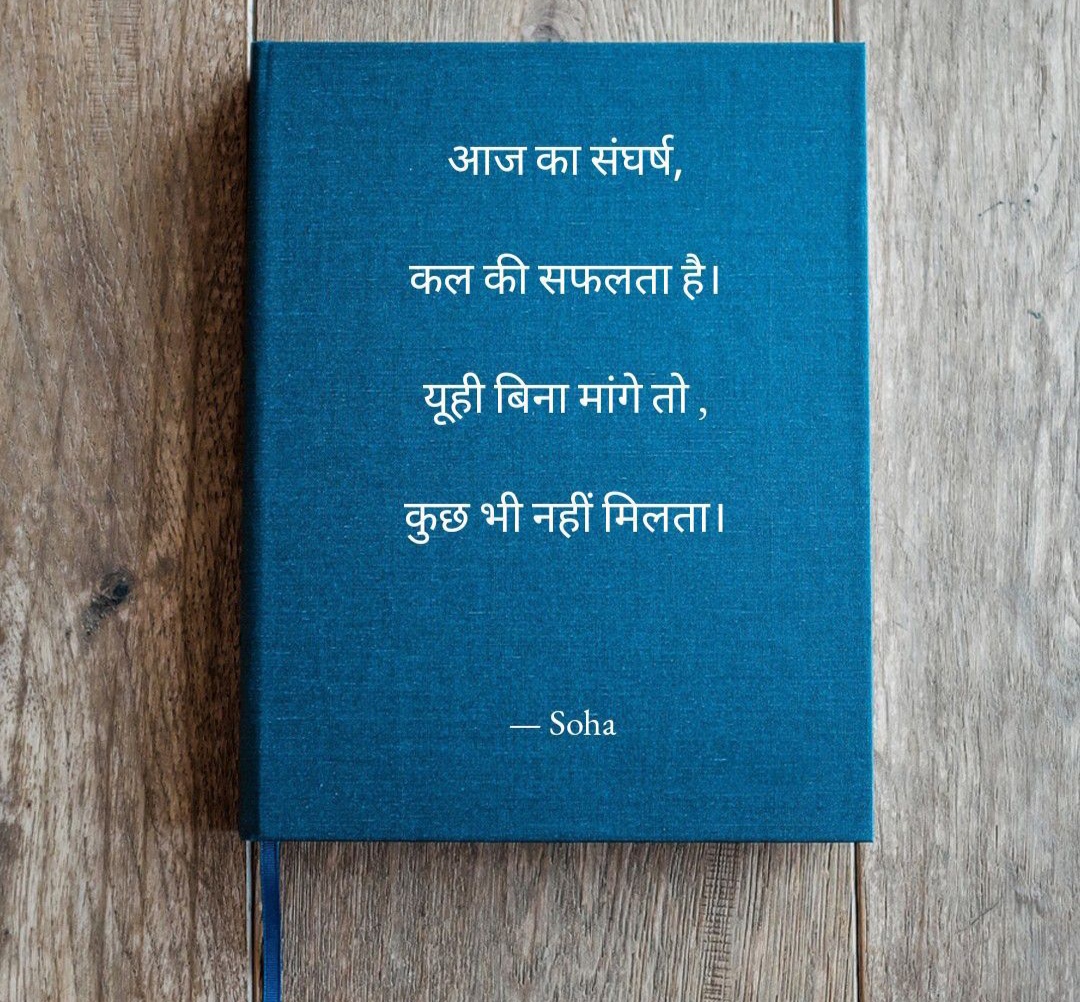 आज का संघर्ष,
कल की सफलता है।
यूही बिना मांगे तो ,
कुछ भी नहीं मिलता।
— Soha